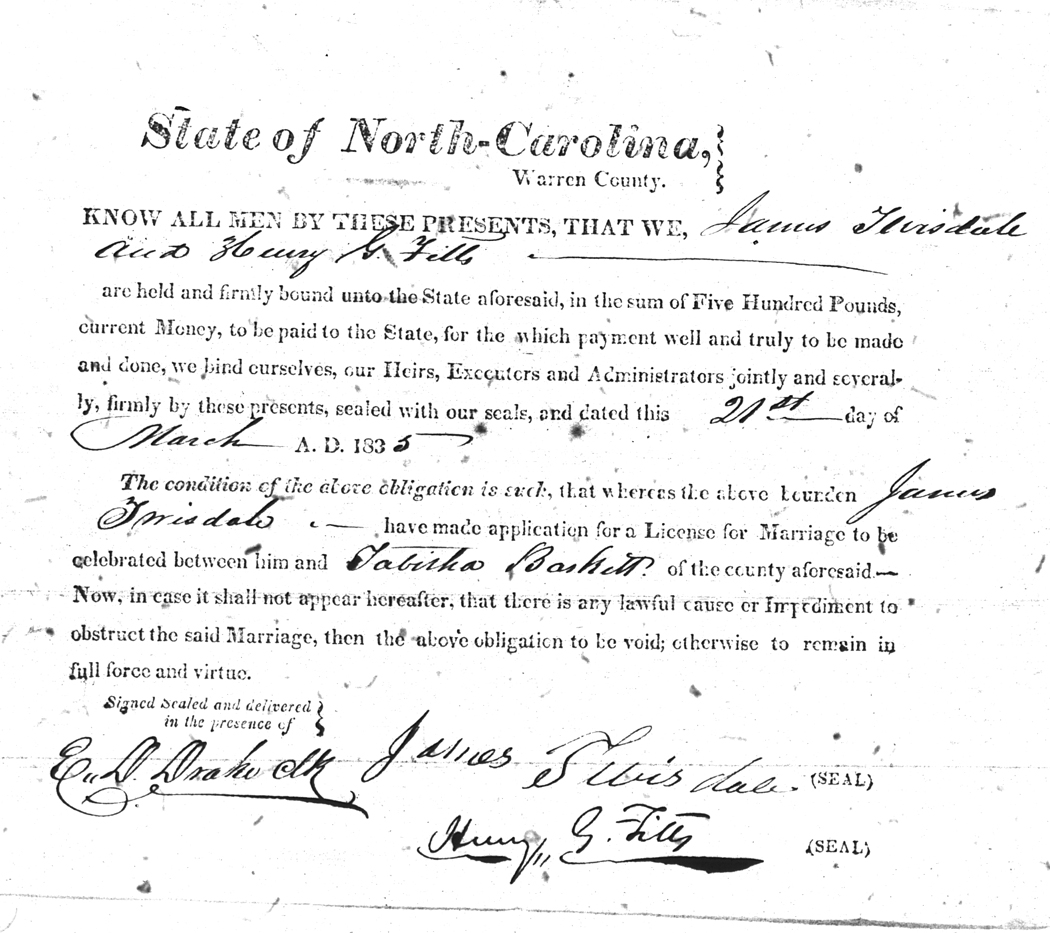 State of North-Carolina,
Warren County.
KNOW ALL MEN BY THESE PRESENTS, THAT WE, James Twisdale
and Henry G. Fitts
are held and firmly bound unto the State aforesaid, in the sum of Five Hundred Pounds,
current Money, to be paid to the State, for the which payment well and truly to be made
and done, we bind ourselves, our Heirs, Executors and Administrators jointly and several-
ly, firmly by these presents, sealed with our seals, and dated this 21st day of
March A. D. 1835
The condition of the above obligation is such, that whereas the above bounden James
Twisdale have made application for a License for Marriage to be
celebrated between him and Tabitha Baskett. of the county aforesaid.—
Now, in case it shall not appear hereafter, that there is any lawful cause or Impediment to
obstruct the said Marriage, then the above obligation to be void; otherwise to remain in
full force and virtue.
Signed Sealed and delivered
in the presence of
E. D. Drake clk James Twisdale. (SEAL)
Henry G. Fitts (SEAL)